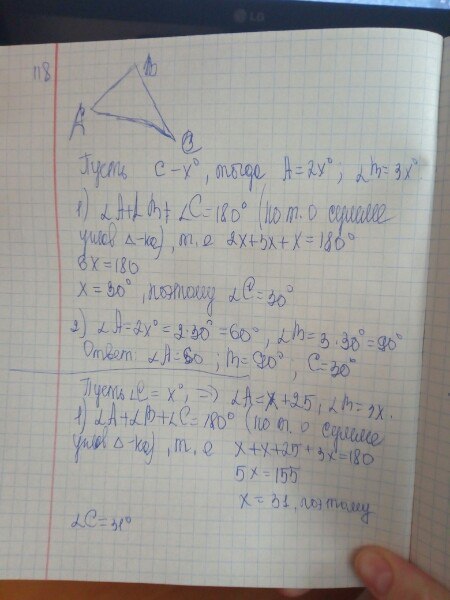 LG
п8
В
А
С
Пусть С - x°, тогда А = 2x°; ∠В = 3x°
1) ∠А + ∠В + ∠С = 180° (по т. о сумме
углов Δ-ка), т.е 2x + 3x + x = 180°
6x = 180
x = 30°, поэтому ∠С = 30°
2) ∠А = 2x° = 2·30° = 60°, ∠В = 3·30° = 90°
Ответ ∠А = 60; В = 90°, С = 30°
Пусть ∠С = x°, => ∠А = x + 25, ∠В = 3x.
1) ∠А + ∠В + ∠С = 180° (по т. о сумме
углов Δ-ка), т.е x + x + 25 + 3x = 180
5x = 155
x = 31, поэтому
∠С = 31°